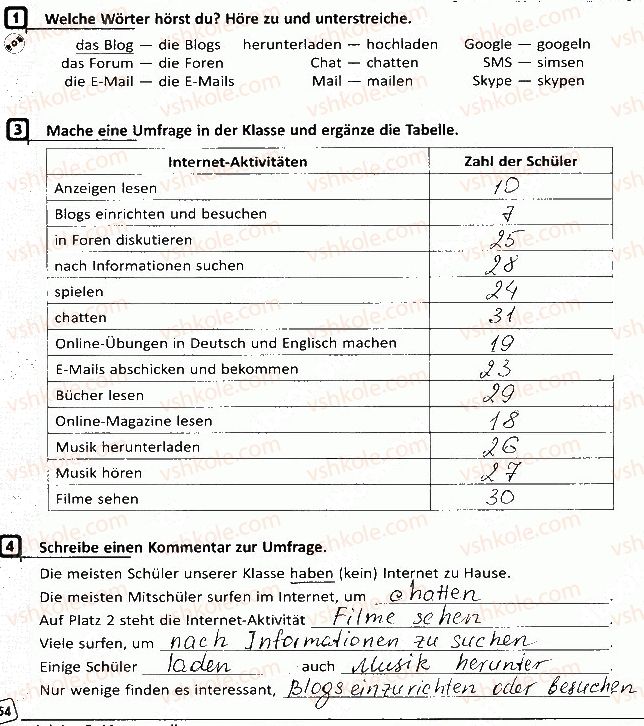 1 Welche Wörter hörst du? Höre zu und unterstreiche.
das Blog — die Blogs herunterladen — hochladen Google — googeln
das Forum — die Foren Chat — chatten SMS — simsen
die E-Mail — die E-Mails Mail — mailen Skype — skypen
3 Mache eine Umfrage in der Klasse und ergänze die Tabelle.
Internet-Aktivitäten Zahl der Schüler
Anzeigen lesen 10
Blogs einrichten und besuchen 7
in Foren diskutieren 25
nach Informationen suchen 28
spielen 24
chatten 31
Online-Übungen in Deutsch und Englisch machen 19
E-Mails abschicken und bekommen 23
Bücher lesen 29
Online-Magazine lesen 18
Musik herunterladen 26
Musik hören 27
Filme sehen 30
4 Schreibe einen Kommentar zur Umfrage.
Die meisten Schüler unserer Klasse haben (kein) Internet zu Hause.
Die meisten Mitschüler surfen im Internet, um chatten.
Auf Platz 2 steht die Internet-Aktivität Filme sehen.
Viele surfen, um nach Informationen zu suchen.
Einige Schüler laden auch Musik herunter.
Nur wenige finden es interessant, Blogs einzurichten oder besuchen
54